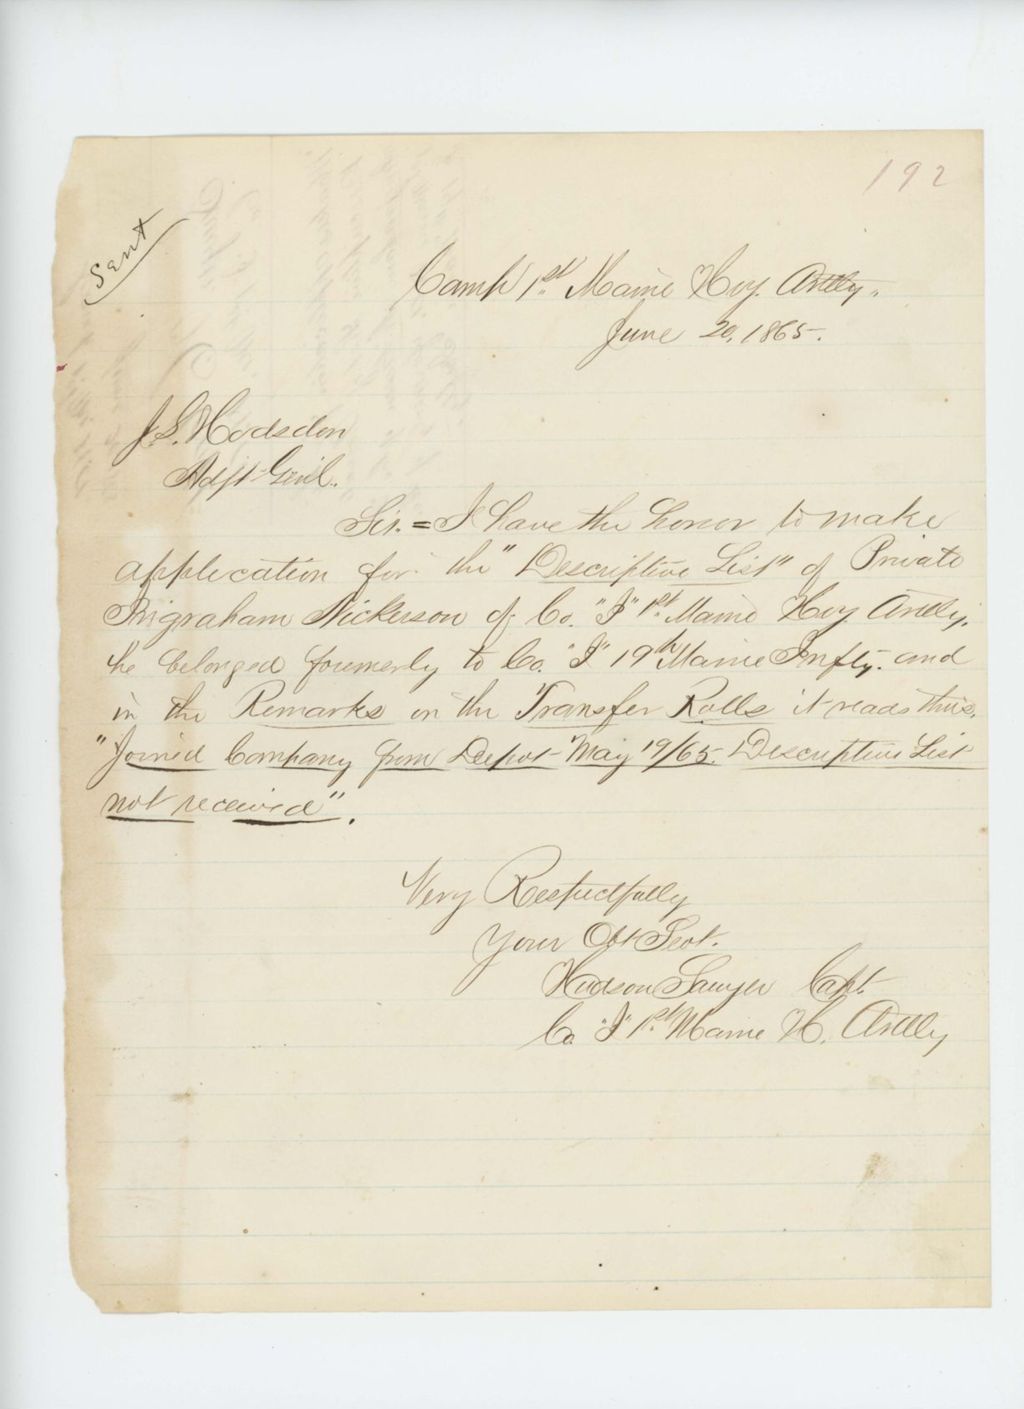 192
Sent
Camp 1st Maine Hvy. Artlly.
June 20, 1865.
J. L. Hodsdon
Adjt Genl.
Sir. = I have the honor to make
application for the "Descriptive List" of Private
Ingraham Nickerson of Co. "I" 1st Maine Hvy Artlly.
he belonged formerly to Co. "I" 19th Maine Infty. and
in the Remarks on the Transfer Rolls it reads thus,
"Joined Company from Depot May 19/65. Descriptive List
not received".
Very Respectfully
Your Obt Servt.
Hudson Sawyer Capt.
Co "I" 1st Maine H. Artlly